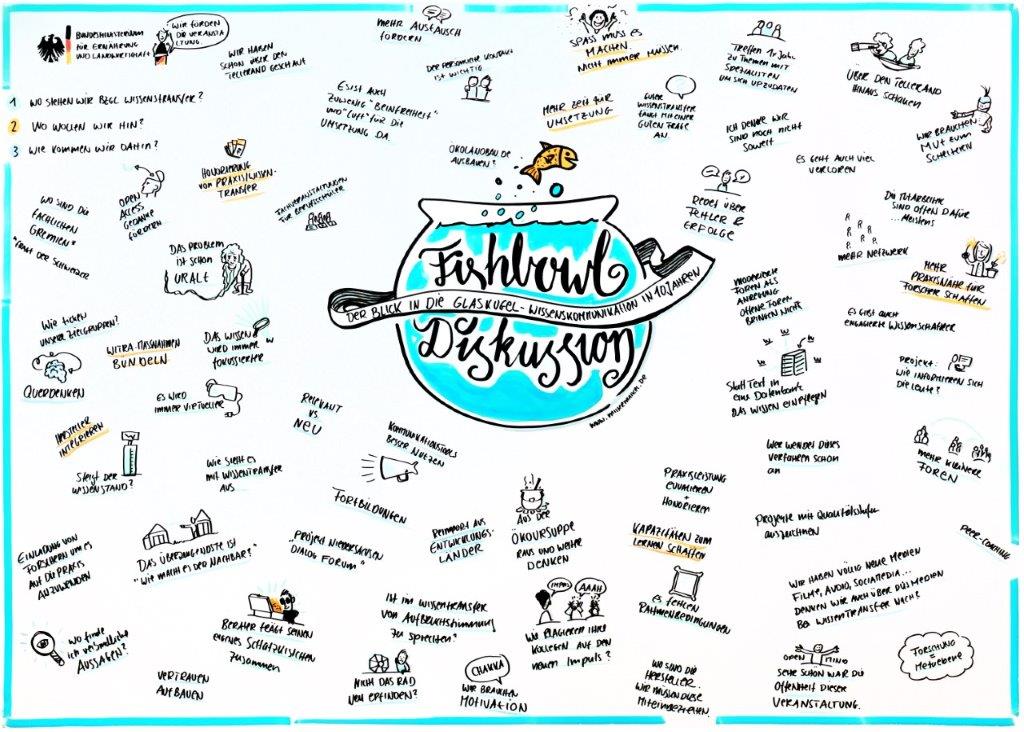 BUNDESMINISTERIUM
FÜR ERNÄHRUNG
UND LANDWIRTSCHAFT
WIR FÖRDERN
DIE VERANSTALTUNG
WIR HABEN
SCHON ÜBER DEN
TELLERAND GESCHAUT
MEHR AUSTAUSCH
FÖRDERN
DER PERSÖNLICHE KONTAKT
IST WICHTIG
SPASS MUSS ES
MACHEN.
NICHT IMMER MÜSSEN.
TREFFEN 1x JAHR
ZU THEMEN MIT
SPEZIALISTEN
UM SICH UPZUDATEN
ÜBER DEN TELLERAND
HINAUS SCHAUEN
1 WO STEHEN WIR BZGL. WISSENSTRANSFER?
2 WO WOLLEN WIR HIN?
3 WIE KOMMEN WIR DAHIN?
ES IST AUCH
ZUWENIG "BEINFREIHEIT"
UND "LUFT" FÜR DIE
UMSETZUNG DA.
MEHR ZEIT FÜR
UMSETZUNG
GUTER
WISSENSTRANSFER
FÄNGT MIT EINER
GUTEN FRAGE
AN
ICH DENKE WIR
SIND NOCH NICHT
SOWEIT
WIR BRAUCHEN
MUT ZUM
SCHEITERN
HONORIERUNG
VON PRAXISWISSEN-
TRANSFER
ÖKOLANDBAU.DE
AUSBAUEN?
ES GEHT AUCH VIEL
VERLOREN
WO SIND DIE
FACHLICHEN
GREMIEN"
OPEN
ACCESS
GEDANKE
FÖRDERN
FÜR BERUFSSCHÜLER
REDET ÜBER
FEHLER &
ERFOLGE
DIE MITARBEITER
SIND OFFEN DAFÜR
...MEISTENS
MEHR NETZWERK
DAS PROBLEM
IST SCHON
URALT
Fishbowl
DER BLICK IN DIE GLASKUGEL - WISSENSKOMMUNIKATION IN 10 JAHREN
Diskussion
www.
MODERIERTE
FOREN ALS
ANREGUNG
OFFENE FOREN
BRINGEN NICHTS
MEHR
PRAXISNÄHE FÜR
FORSCHER SCHAFFEN
ES GIBT AUCH
ENGAGIERTE WISSENSCHAFTLER
WIE TICKEN
UNSERE ZIELGRUPPEN?
WITRA-MASSNAHMEN
BÜNDELN
DAS WISSEN
WIRD IMMER
FOKUSSIERTER
QUERDENKEN
ES WIRD
IMMER VIRTUELLER
STATT TEXT IN
EINE DATENBANK
DAS WISSEN EINPFLEGEN
PROJEKT:
WIE INFORMIEREN SICH
DIE LEUTE?
HERSTELLER
INTEGRIEREN
RELEVANT
VS
NEU
KOMMUNIKATIONSTOOLS
BESSER NUTZEN
STEIGT DER
WISSENSTAND?
WIE SIEHT ES
MIT WISSENTRANSFER
AUS
WER WENDET DIESES
VERFAHREN SCHON
AN
MEHR KLEINERE
FOREN
FORTBILDUNGEN
PRAXISLEISTUNG
EVALUIEREN
+
HONORIEREN
EINLADUNG VON
FORSCHERN UM ES
AUF DIE PRAXIS
ANZUWENDEN
DAS ÜBERZEUGENDSTE IST
"WIE MACHT ES DER NACHBAR?"
"PROJEKT NIEDERSACHSEN
DIALOG FORUM"
REIMPORT AUS
ENTWICKLUNGS-
LÄNDER
AUS DER
ÖKOURSUPPE
RAUS UND WEITER
DENKEN
KAPAZITÄTEN ZUM
LERNEN SCHAFFEN
PROJEKTE MIT QUALITÄTSSTUFEN
AUSZEICHNEN
PEER-COACHING
WIR HABEN VÖLLIG NEUE MEDIEN
FILME, AUDIO, SOCIALMEDIA...
DENKEN WIR AUCH ÜBER DIES MEDIEN
BEI WISSENTRANSFER NACH?
WO FINDE
ICH VERSTÄNDLICHE
AUSSAGEN?
BERATER TRÄGT SEINEN
EIGENES SCHATZKISTCHEN
ZUSAMMEN
IST IM WISSENTRANSFER
VON AUFBRUCHSTIMMUNG
ZU SPRECHEN?
IMPULS
AAAH
WIE REAGIEREN IHRE
KOLLEGEN AUF DEN
NEUEN IMPULS?
ES FEHLEN
RAHMENBEDINGUNGEN
VERTRAUEN
AUFBAUEN
NICHT DAS RAD
NEU ERFINDEN?
CHAKKA
WIR BRAUCHEN
MOTIVATION
WO SIND DIE
HERSTELLER.
WIR MÜSSEN DIESE
MITEINBEZIEHEN.
OPEN MIND
SEHR SCHÖN WAR DIE
OFFENHEIT DIESER
VERANSTALTUNG.
FORSCHUNG
=
METAEBENE